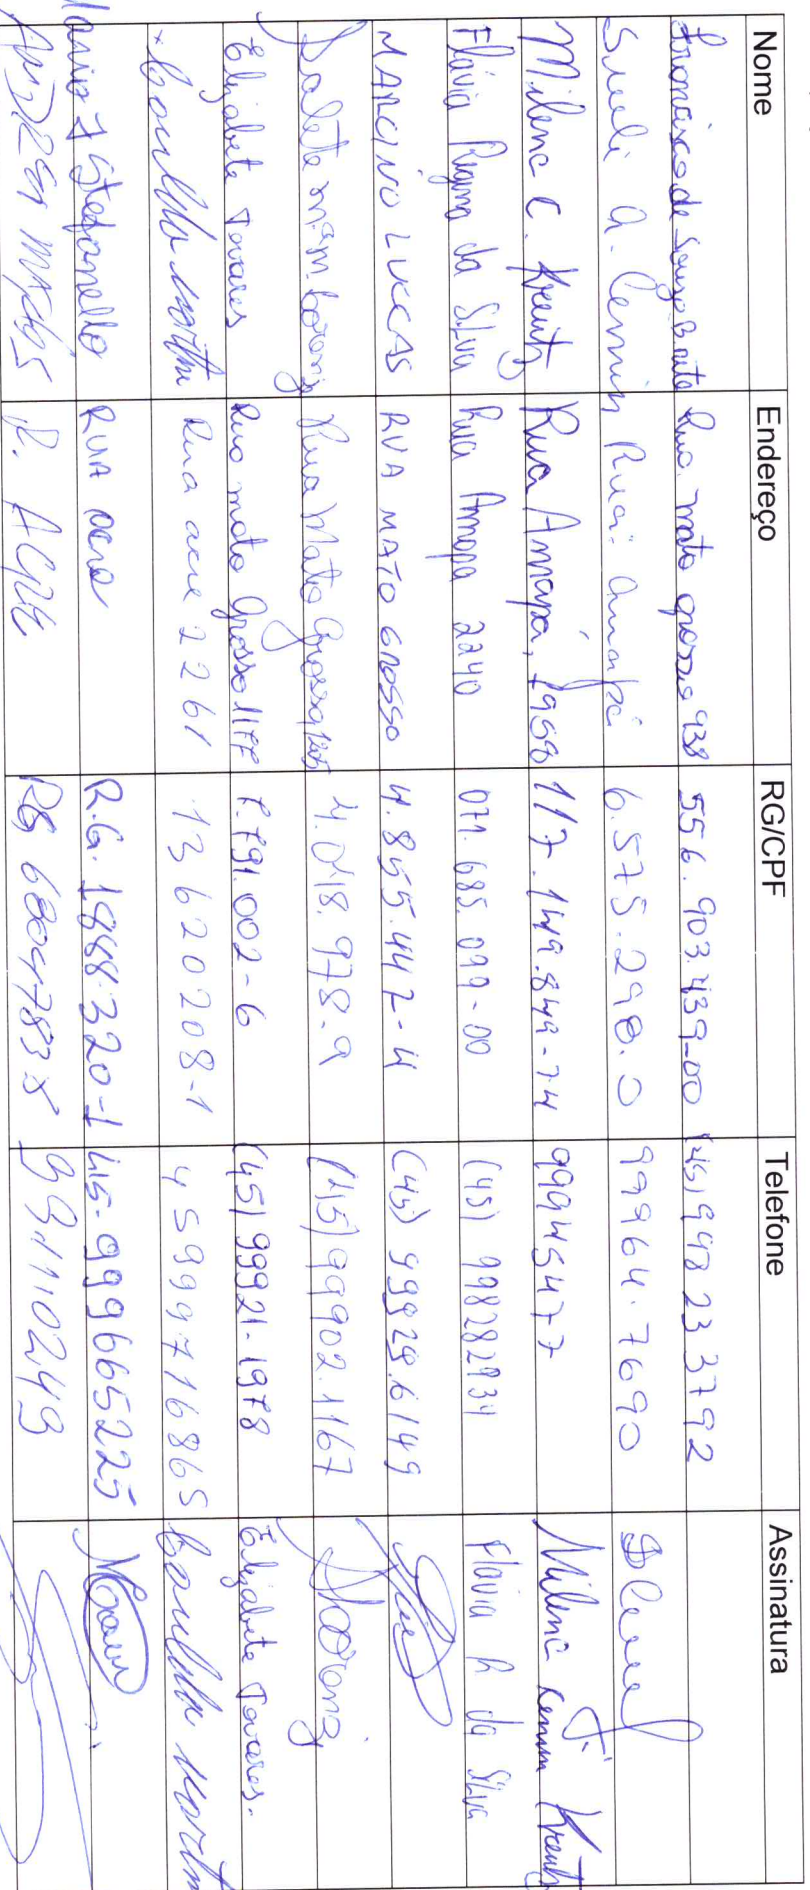 Nome Endereço RG/CPF Telefone Assinatura
Francisco de Souza Brito Rua mato grosso 938 556.903.439-00 (45) 948233792
Sueli A. Cemin Rua: Amapá 6.575.290.0 99964.7690
Milena C. Kreutz Rua Amapá, 1958 117.149.849-74 99945477 Milena Cemin Kreutz
Flávia Regina da Silva Rua Amapa 2240 071.685.099-00 (45) 998282934 Flávia R da Silva
MARCINO LUCCAS RUA MATO GROSSO 4.855.447-4 (45) 99929.6149
Salete Rua Mato Grosso 4.018.978.9 (45) 99902.1167
Elizabete Tavares Rua mato Grosso 1177 7.791.002-6 (45) 99921-1978 Elizabete Tavares.
Rua acre 2261 13620208-1 45999716865
Stefanello RUA acre R.G. 1888.320-1 45-999665225
R. ACRE RG 68047838 991110249